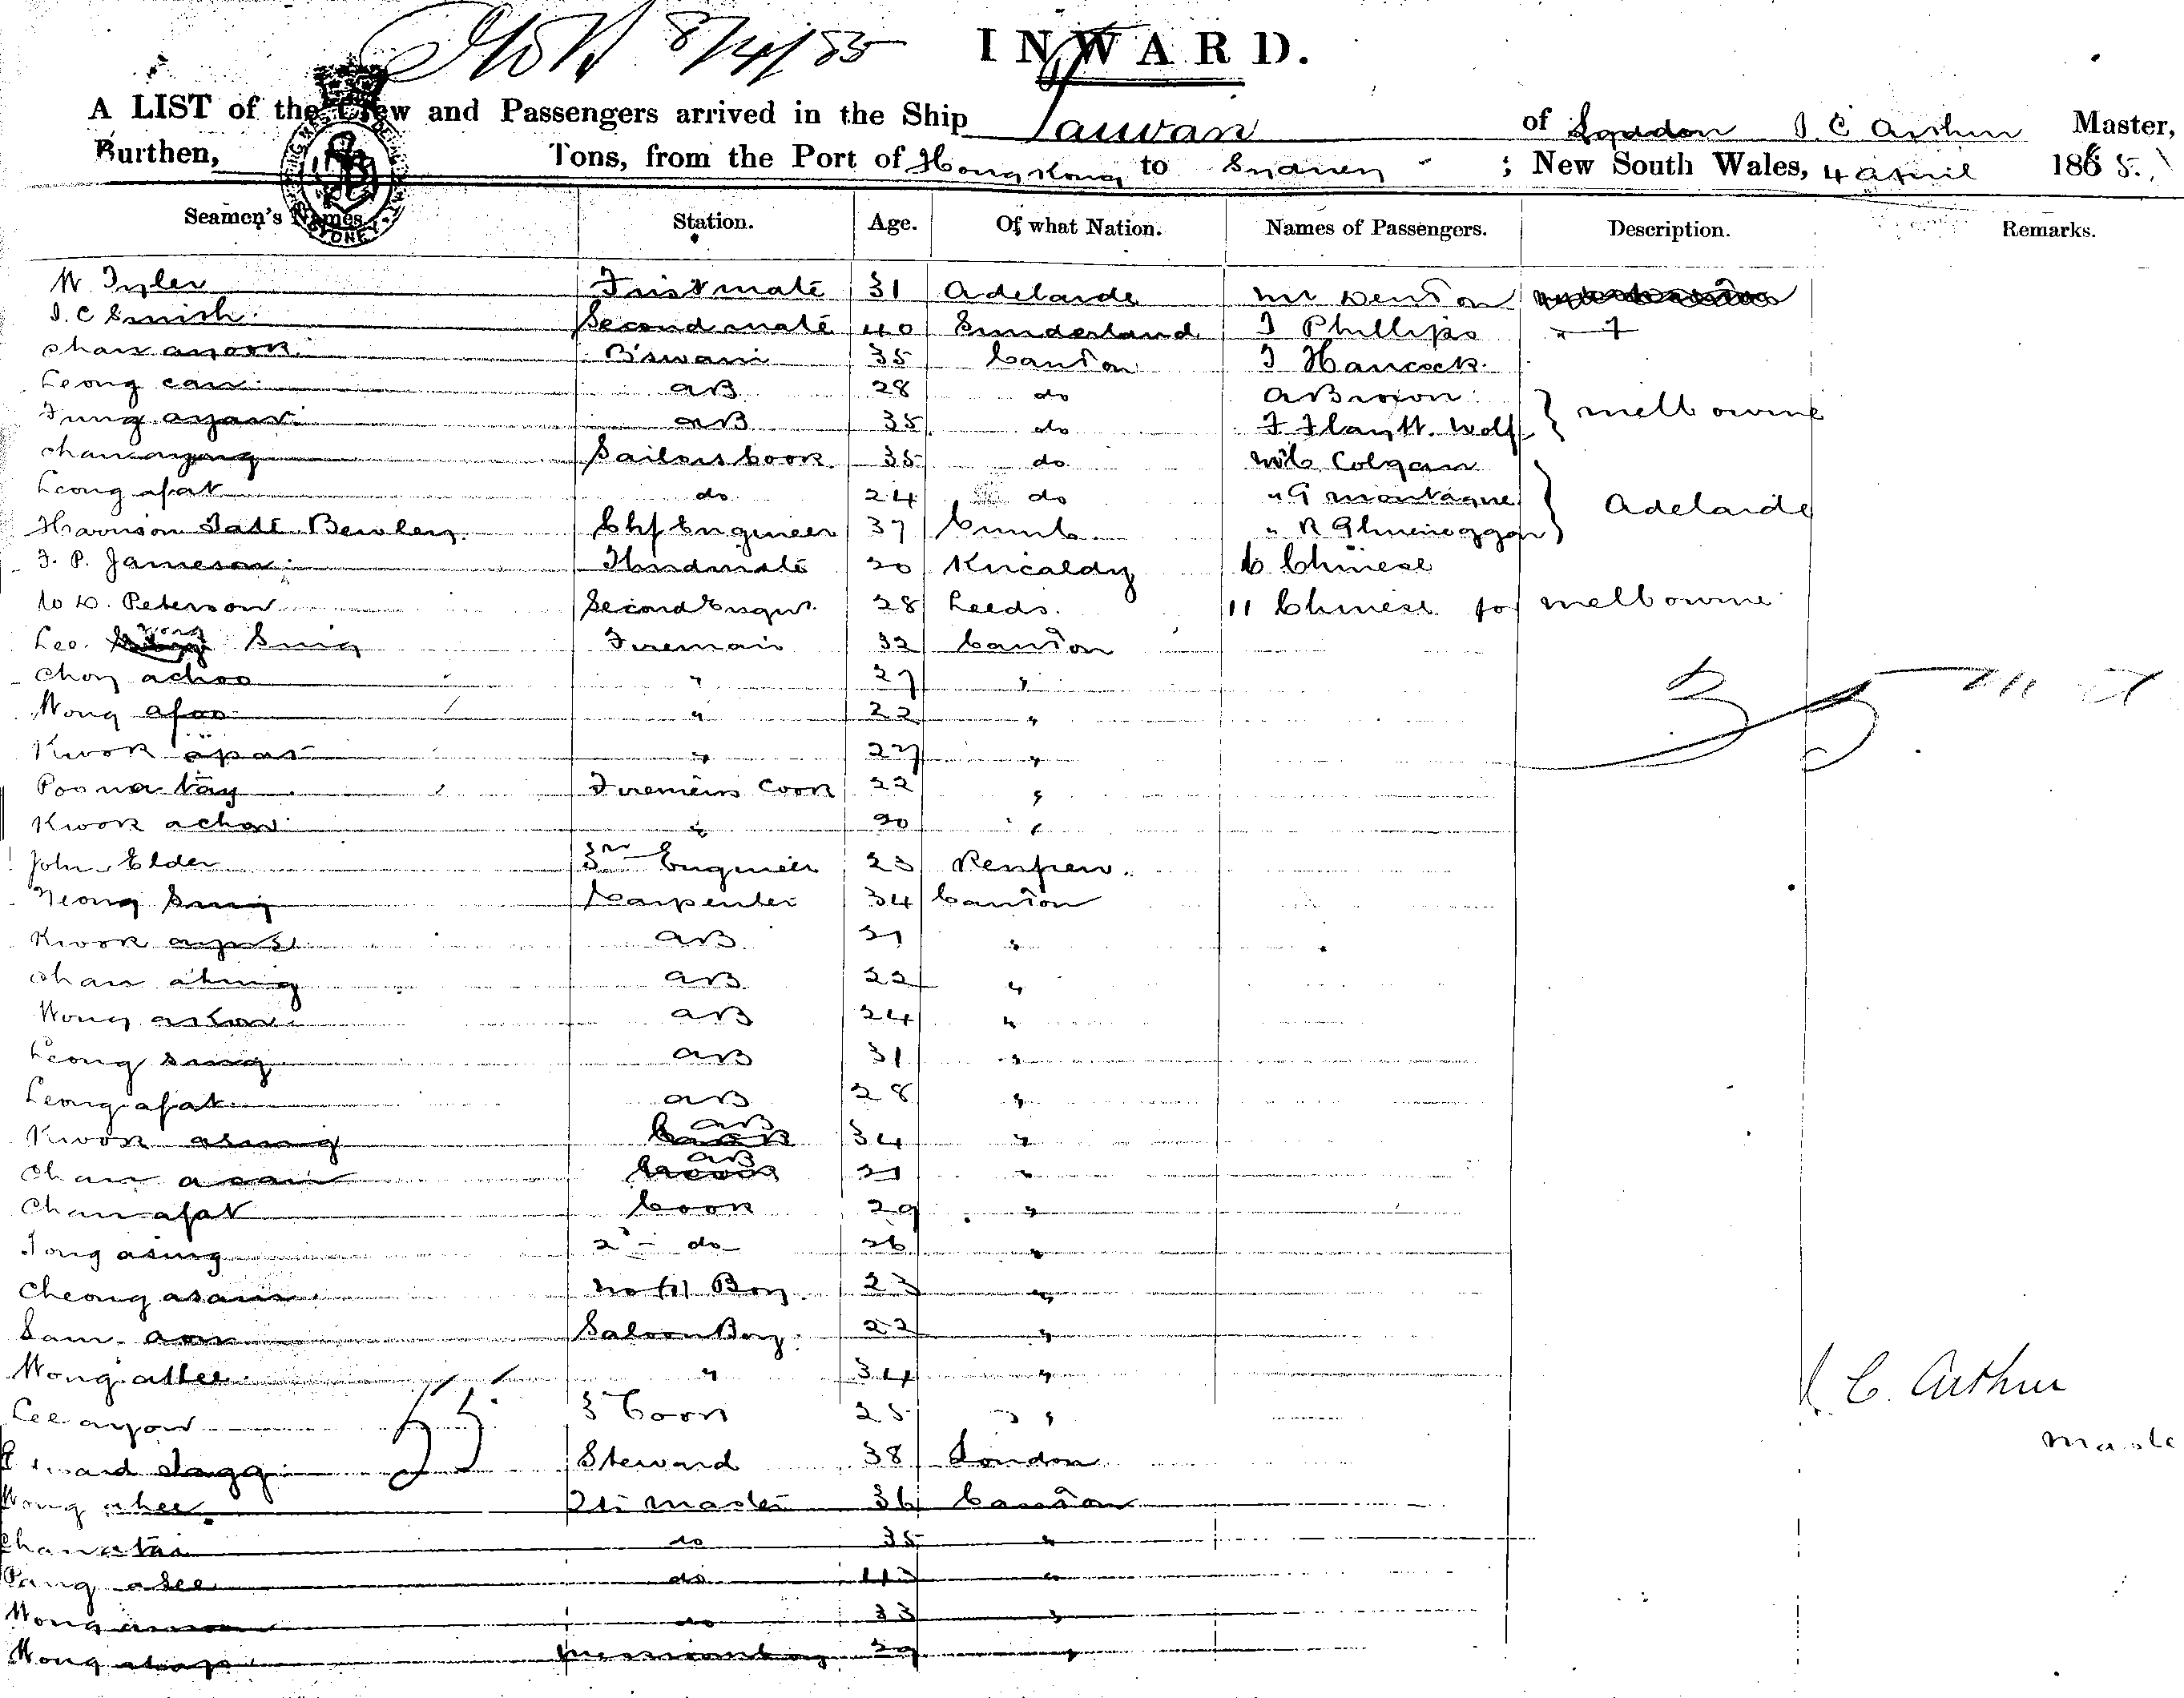 8/4/85 INWARD.
A LIST of the Crew and Passengers arrived in the Ship Taiwan of London J. C Arthur Master,
Burthen, Tons, from the Port of Hong Kong to Sydney ; New South Wales, 4 April 1885.
Seamen's Names. Station. Age. Of what Nation. Names of Passengers. Description. Remarks.
W. Tyler First mate 31 Adelaide Mr Denton
J. C Smith Second mate 40 Sunderland J Phillips
Chan ayook B'swain 35 Canton J Hancock
Leong can AB 28 do A Brown
Fung ayan AB 35 do Wolf } Melbourne
Chan ayung Sailors Cook 35 do Colgan
Leong afat do 24 do " G Montague } Adelaide
Harrison Tate Bewley Chf Engineer 37 Cumb. " R
J. P. Jameson Third mate 20 Kircaldy 6 Chinese
W D. Peterson Second Engnr. 28 Leeds 11 Chinese for Melbourne
Lee Sing Fireman 32 Canton
Choy achoo " 27 "
Wong afoo " 22 "
Kwok apat " 27 "
Poon a tay Firemens Cook 22 "
Kwok achow " 20 "
John Elder 3rd Engineer 23 Renfrew
Neong Sing Carpenter 34 Canton
Kwok AB 31 "
Chan ahing AB 22 "
Wong AB 24 "
Leong sing AB 31 "
Leong afat AB 28 "
Kwok asing AB 34 "
Chan asam AB 21 "
Chan afat Cook 29 "
Tong asing 2d do 26 "
Cheong asam No (1) Boy 23 "
Sam aon Saloon Boy 22 "
Wong allee " 34 "
J. C. Arthur
Lee ayow 3 Cook 25 "
55
Master
Edward Stagg Steward 38 London
Wong ahee Qr Master 36 Canton
Chan a tai do 35 "
Pang asee do 43 "
Wong do 33 "
Wong 29 "